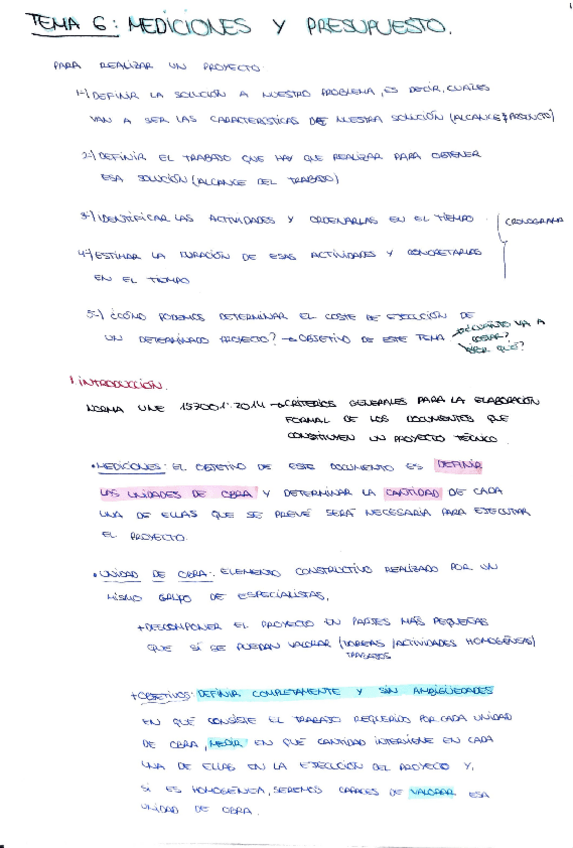 1
TEMA 6: MEDICIONES Y PRESUPUESTO.
PARA REALIZAR UN PROYECTO:
1-) DEFINIR LA SOLUCIÓN A NUESTRO PROBLEMA, ES DECIR, CUALES
VAN A SER LAS CARACTERÍSTICAS DE NUESTRA SOLUCIÓN (ALCANCE PRODUCTO)
2-) DEFINIR EL TRABAJO QUE HAY QUE REALIZAR PARA OBTENER
ESA SOLUCIÓN (ALCANCE DEL TRABAJO)
3-) IDENTIFICAR LAS ACTIVIDADES Y ORDENARLAS EN EL TIEMPO
CRONOGRAMA
4-) ESTIMAR LA DURACIÓN DE ESAS ACTIVIDADES Y CONCRETARLAS
EN EL TIEMPO
5-) ¿CÓMO PODEMOS DETERMINAR EL COSTE DE EJECUCIÓN DE
UN DETERMINADO PROYECTO? → OBJETIVO DE ESTE TEMA
¿CUÁNTO VA A
COSTAR?
¿POR QUÉ?
1. INTRODUCCIÓN.
NORMA UNE 157001:2014 → CRITERIOS GENERALES PARA LA ELABORACIÓN
FORMAL DE LOS DOCUMENTOS QUE
CONSTITUYEN UN PROYECTO TÉCNICO.
• MEDICIONES: EL OBJETIVO DE ESTE DOCUMENTO ES DEFINIR
LAS UNIDADES DE OBRA Y DETERMINAR LA CANTIDAD DE CADA
UNA DE ELLAS QUE SE PREVÉ SERÁ NECESARIA PARA EJECUTAR
EL PROYECTO.
• UNIDAD DE OBRA: ELEMENTO CONSTRUCTIVO REALIZADO POR UN
MISMO GRUPO DE ESPECIALISTAS,
+ DESCOMPONER EL PROYECTO EN PARTES MÁS PEQUEÑAS
QUE SÍ SE PUEDAN VALORAR (TAREAS / ACTIVIDADES HOMOGÉNEAS)
TRABAJOS
+ OBJETIVOS: DEFINIR COMPLETAMENTE Y SIN AMBIGÜEDADES
EN QUÉ CONSISTE EL TRABAJO REQUERIDO POR CADA UNIDAD
DE OBRA, MEDIR EN QUÉ CANTIDAD INTERVIENE EN CADA
UNA DE ELLAS EN LA EJECUCIÓN DEL PROYECTO Y,
SI ES HOMOGÉNEA, SEREMOS CAPACES DE VALORAR ESA
UNIDAD DE OBRA.